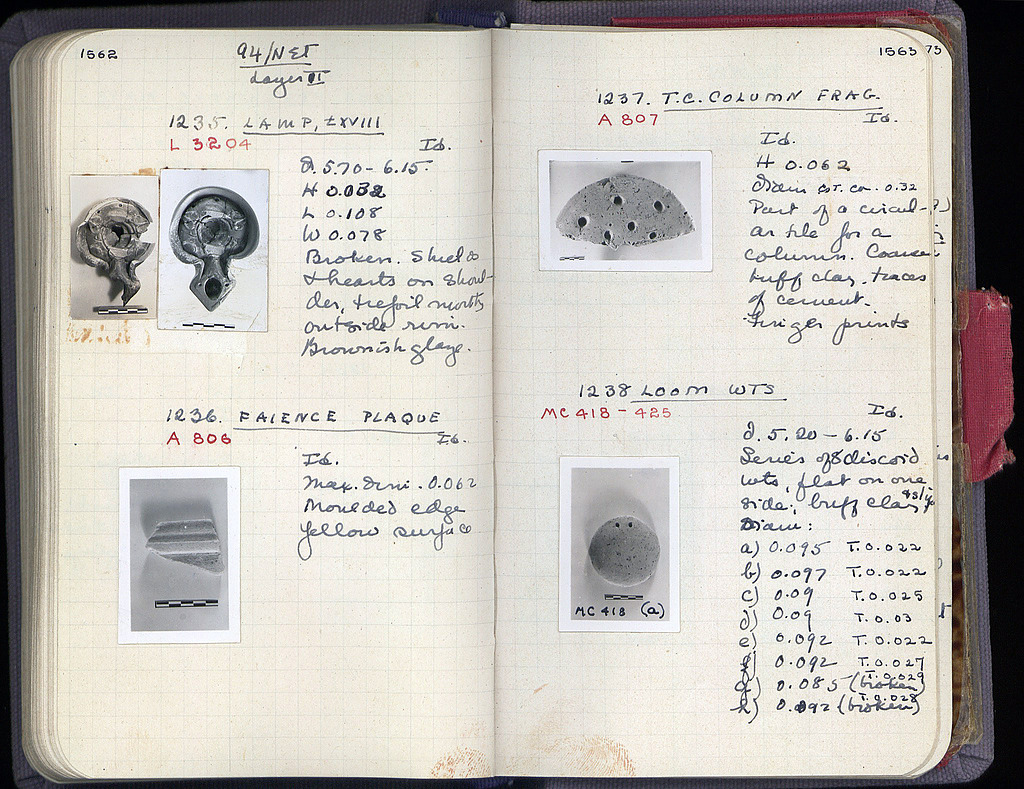 1562
94/NET
Layer II
1235. LAMP, ±XVIII
L 3204
Id.
d. 5.70 - 6.15.
H 0.032
L 0.108
W 0.078
Broken. Shields
& hearts on shoul-
der, trefoil motifs
outside rim.
Brownish glaze.
1236. FAIENCE PLAQUE
A 806
Id.
Id.
Max. dim. 0.062
Moulded edge
Yellow surface
1563
73
1237. T.C. COLUMN FRAG.
A 807
Id.
Id.
H 0.062
Diam est. ca. 0.32
Part of a circul-
ar tile for a
column. Coarse
buff clay, traces
of cement.
Finger prints
1238 LOOM WTS
MC 418 - 425
Id.
d. 5.20 - 6.15
Series of 8 discoid
wts, flat on one
side; buff clay
Diam:
a) 0.095 T. 0.022
b) 0.097 T. 0.022
c) 0.09 T. 0.025
d) 0.09 T. 0.03
e) 0.092 T. 0.022
0.092 T. 0.027
T. 0.029
g) 0.085 (broken)
T. 0.028
h) 0.092 (broken)
MC 418 (a)